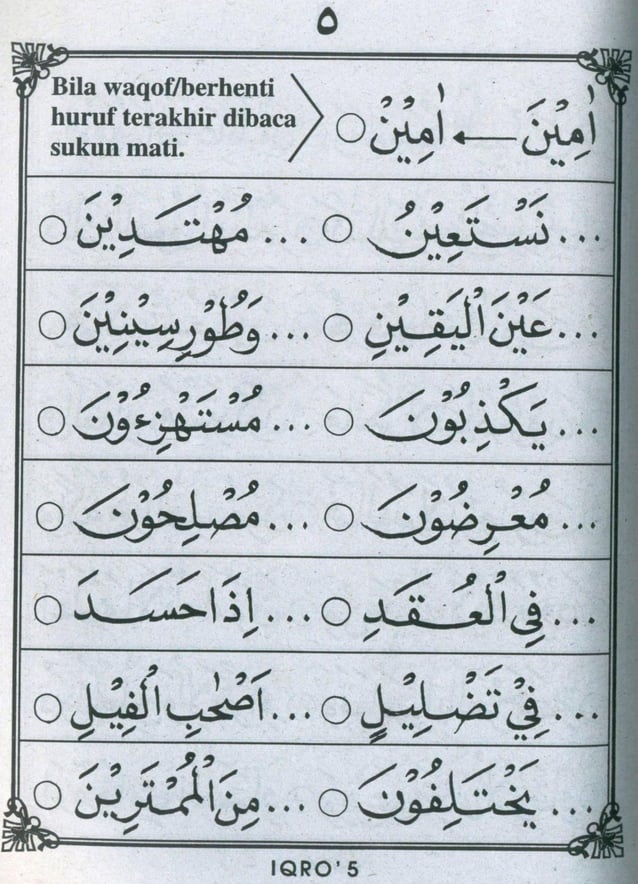 ٥
Bila waqof/berhenti
huruf terakhir dibaca
sukun mati.
اٰمِيْنَ ← اٰمِيْنْ ○
... نَسْتَعِيْنُ ○ ... مُهْتَدِيْنَ ○
... عَيْنَ الْيَقِيْنِ ○ ... وَطُوْرِسِيْنِيْنَ ○
... يَكْذِبُوْنَ ○ ... مُسْتَهْزِءُوْنَ ○
... مُعْرِضُوْنَ ○ ... مُصْلِحُوْنَ ○
... فِى الْعُقَدِ ○ ... اِذَا حَسَدَ ○
... فِيْ تَضْلِيْلٍ ○ ... اَصْحٰبِ الْفِيْلِ ○
... يَخْتَلِفُوْنَ ○ ... مِنَ الْمُمْتَرِيْنَ ○
IQRO' 5